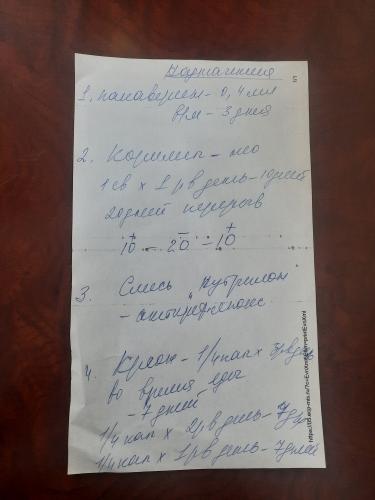 Назначения
1. папаверин - 0,4 мл
в/м - 3 дня
2. Корилип - нео
1 св х 1 р в день - 10 дней
20 дней перерыв
10 - 20 - 10
3. Смесь "Нутрилон
- антирефлюкс
4. Креон - 1/4 кап х 3 р в день
во время еды
- 7 дней
1/4 кап х 2 р в день - 7 дн
1/4 кап х 1 р в день - 7 дней